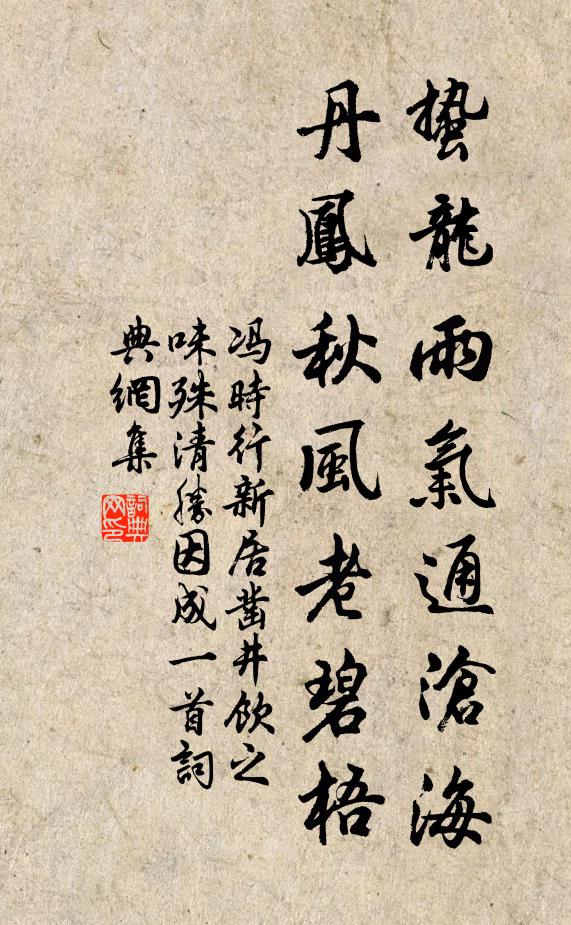 蟄龍雨氣通滄海
丹鳳秋風老碧梧
冯時行新居凿井饮之
味殊清勝因成一首詞
典網集
詞典
网印